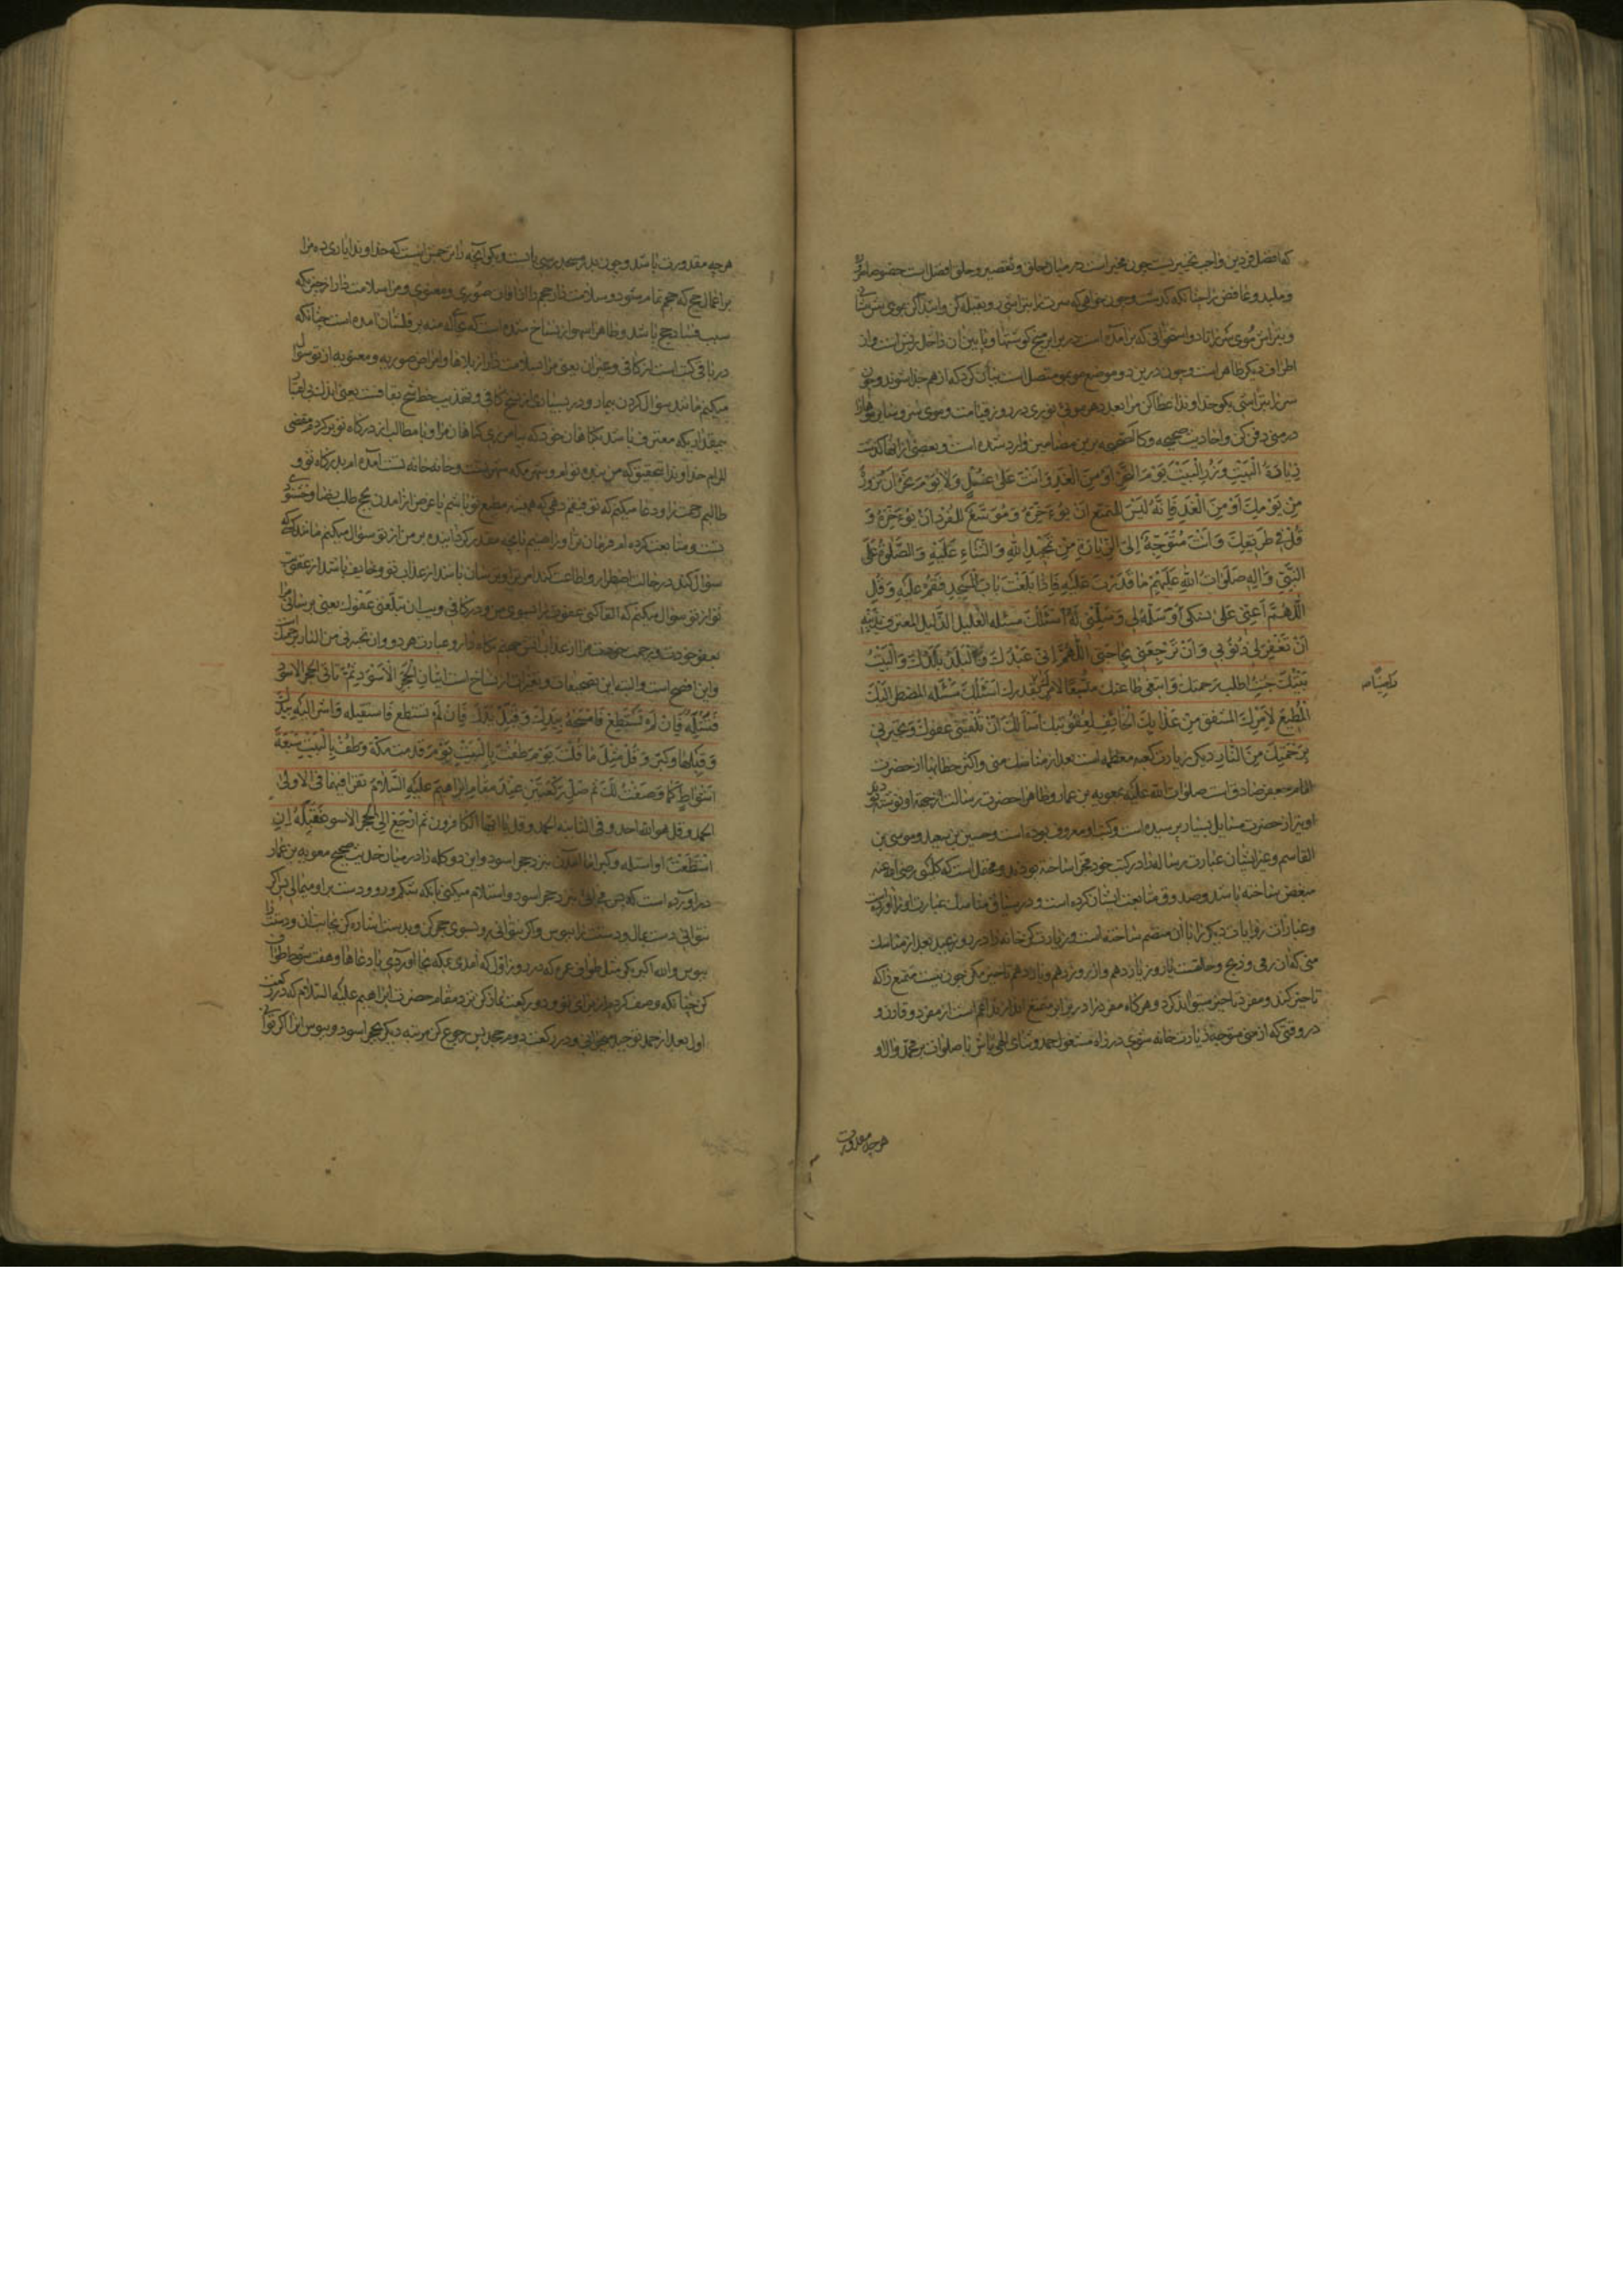 که افضل فردین واجب تخییریست چون مخیر است در میان حلق و تقصیر و حلق افضل است خصوصا صرورة
و ملبد و عاقص را چنانکه گذشت و چون خواهی که سرت را بتراشی رو بقبله کن و ابتدا کن بموی
و بتراش موی سر را تا دو استخوانی که برآمده است در برابر میخ گوشتها و پایین آن داخل ریش است و از
اطراف دیگر ظاهر است و چون درین دو موضع موی متصل است بیان کرد که از هم جدا شوند و چون
سر را بتراشی بگو خداوندا عطا کن مرا بعدد هر موئی نوری در روز قیامت و موی سر و
در منی دفن کن و احادیث صحیحه و کالصحیحه برین مضامین وارد شده است و بعضی از آنها گذشت
زیارة البیت و زر البیت یوم النحر او من الغد و انت علی غسل و لا تؤخر ان تزور
من یومک او من الغد فانه لیس للمتمتع ان یؤخره و موسع للمفرد ان یؤخره و
قل فی طریقک و انت متوجه الی الزیارة من تمجید الله و الثناء علیه و الصلوة علی
النبی و آله صلوات الله علیهم ما قدرت علیه فاذا بلغت باب المسجد فقم علیه و قل
اللهم اعنی علی نسکی و سلمه لی و سلمنی له اسئلک مسئله العلیل الذلیل المعترف بذنبه
ان تغفر لی ذنوبی و ان ترجعنی بحاجتی اللهم انی عبدک و البلد بلدک و البیت
بیتک جئت اطلب رحمتک و ابتغی طاعتک متبعا لامرک بقدرک اسئلک مسئله المضطر الیک
المطیع لامرک المشفق من عذابک الخائف لعقوبتک اسألک ان تلقینی عفوک و تجیرنی
برحمتک من النار دیگری زیارت کعبه معظمه است بعد از مناسک منی و اکثر خطابها از حضرت
امام جعفر صادق است صلوات الله علیه بمعویه بن عمار و ظاهرا حضرت رسالت از جهة او نوشته
او نیز از حضرت مسایل بسیار پرسیده است و کتب او معروف بوده است و حسین بن سعید و موسی بن
القاسم و غیر ایشان عبارت رساله را در کتب خود مجزا ساخته بودند و محتمل است که کلینی رضی الله عنه
مبعض ساخته باشد و صدوق متابعت ایشان کرده است و در سیاق مناسک عبارت او را آورده
و عبارات روایات دیگر را با آن منضم ساخته است و زیارت کن خانه را در روز عید بعد از مناسک
منی که آن رمی و ذبح و حلقست یا روز یازدهم و از روز دهم و یازدهم تاخیر مکن چون نیست متمتع را که
تاخیر کند و مفرد تاخیر میتواند کرد و هرگاه مفرد را در برابر متمتع اندازند اعم است از مفرد و قارن و
در وقتی که از منی متوجه زیارت خانه شوی در راه مشغول حمد و ثنای الهی باش با صلوات بر محمد و آل او
هرچه مقدورت
هرچه مقدورت باشد و چون بدر مسجد رسی بایست و بگو آنچه ترجمه‌اش اینست که خداوندا یاری ده مرا
بر اعمال حج که حجم تمام شود و سلامت دار حجم را از آفات صوری و معنوی و مرا سلامت دار از چیزی که
سبب فساد حج باشد و ظاهرا سهو از نساخ شده است که بجای له منه بر قلمشان آمده است چنانکه
در باقی کتب است از کافی و غیر آن یعنی مرا سلامت دار از بلاها و امراض صوریه و معنویه از تو سؤال
میکنم مانند سؤال کردن بیمار و در بسیاری از نسخ کافی و تهذیب بخط شیخ بقافست یعنی اندک بی اعتبار
بیمقداری که معترف باشد بگناهان خود که بیامرزی گناهان مرا و با مطالب از درگاه تو برگردم مقضی
المرام خداوندا بتحقیق که من بنده توام و شهر مکه شهر تست و خانه خانه تست آمده ام بدرگاه تو و
طالبم رحمت ترا و دعا میکنم که توفیقم دهی که همیشه مطیع تو باشم یا غرض از آمدن بحج طلب رضا و خشنودی
تست و متابعت کرده ام فرمان ترا و راضیم بآنچه مقدر گردانیده بر من از تو سؤال میکنم مانند کسی که
سؤال کند در حالت اضطرار و اطاعت کند امر ترا و ترسان باشد از عذاب تو و خایف باشد از عقوبت
تو از تو سؤال میکنم که القا کنی عفو خود را بسوی من و در کافی و یب ان تبلغنی عفوک یعنی برسانی مرا
بعفو خودت و برحمت خودت مرا از عذاب آتش جهنم نگاه دار و عبارت هر دو و ان تجیرنی من النار برحمتک
و این افصح است و البته این تصحیفات و تغییرات از نساخ است اتیان الحجر الاسود ثم تاتی الحجر الاسود
فتستلمه فان لم تستطع فامسحه بیدک و قبل یدک فان لم تستطع فاستقبله و اشر الیه بیدک
و قبلها و کبر و قل مثل ما قلت یوم طفت بالبیت یوم قدمت مکة و طف بالبیت سبعة
اشواط کما وصفت لک ثم صل رکعتین عند مقام ابراهیم علیه السلام تقرا فیهما فی الاولی
الحمد و قل هو الله احد و فی الثانیه الحمد و قل یا ایها الکافرون ثم ارجع الی الحجر الاسود فقبله ان
استطعت او استلمه و کبر اما آمدن بنزد حجر اسود و این دو کلمه را در میان حدیث صحیح معویه بن عمار
درآورده است که پس می آئی بنزد حجر اسود و استلام میکنی بآنکه شکم و رو و دست بر او میمالی پس اگر
نتوانی دست بمال و دستت را ببوس و اگر نتوانی رو بسوی حجر کن و بدست اشاره کن بجانب آن و دستت را
ببوس و الله اکبر بگو مثل طواف عمره که در روز اول که آمدی بمکه بجا آوردی با دعاها و هفت شوط طواف
کن چنانکه وصف کردم از برای تو و دو رکعت نماز کن نزد مقام حضرت ابراهیم علیه السلام که در رکعت
اول بعد از حمد توحید میخوانی و در رکعت دوم جحد پس رجوع کن مرتبه دیگر بحجر اسود و ببوس آنرا اگر توانی